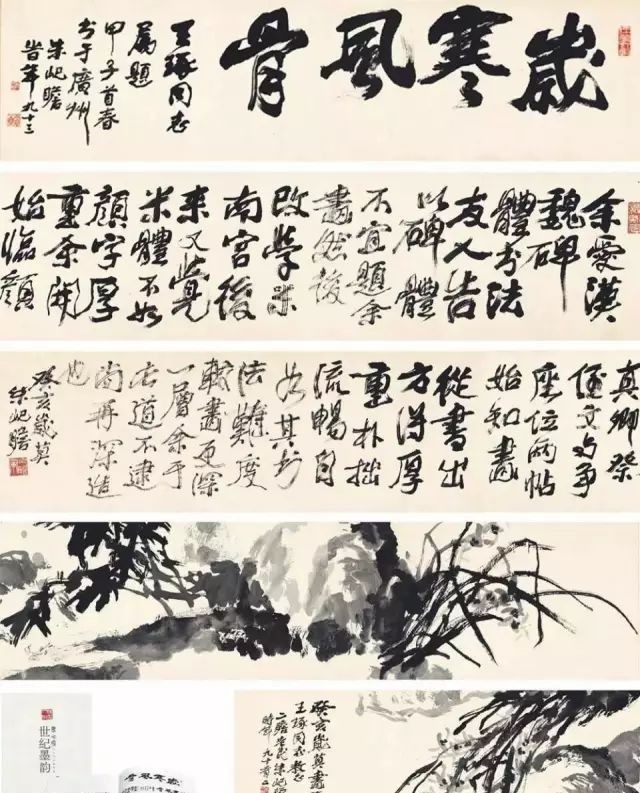 歲寒風骨
王琢同志
屬題
甲子首春
书于廣州
朱屺瞻
時年九十三
余愛漢
魏碑
體书法
友人告
以碑體
不宜題余
畫然後
改學米
南宮後
來又覺
米體不如
顏字厚
重余開
始臨顏
真卿祭
侄文与爭
座位兩帖
始知畫
從書出
方得厚
重朴拙
流暢自
如其书
法難度
較畫更深
一層余于
古道不逮
尚再深造
也
癸亥歲莫
朱屺瞻
癸亥歲莫畫
王琢同志教正
二瞻老民朱屺瞻
時年九十有二
世紀墨韵
歲寒風骨